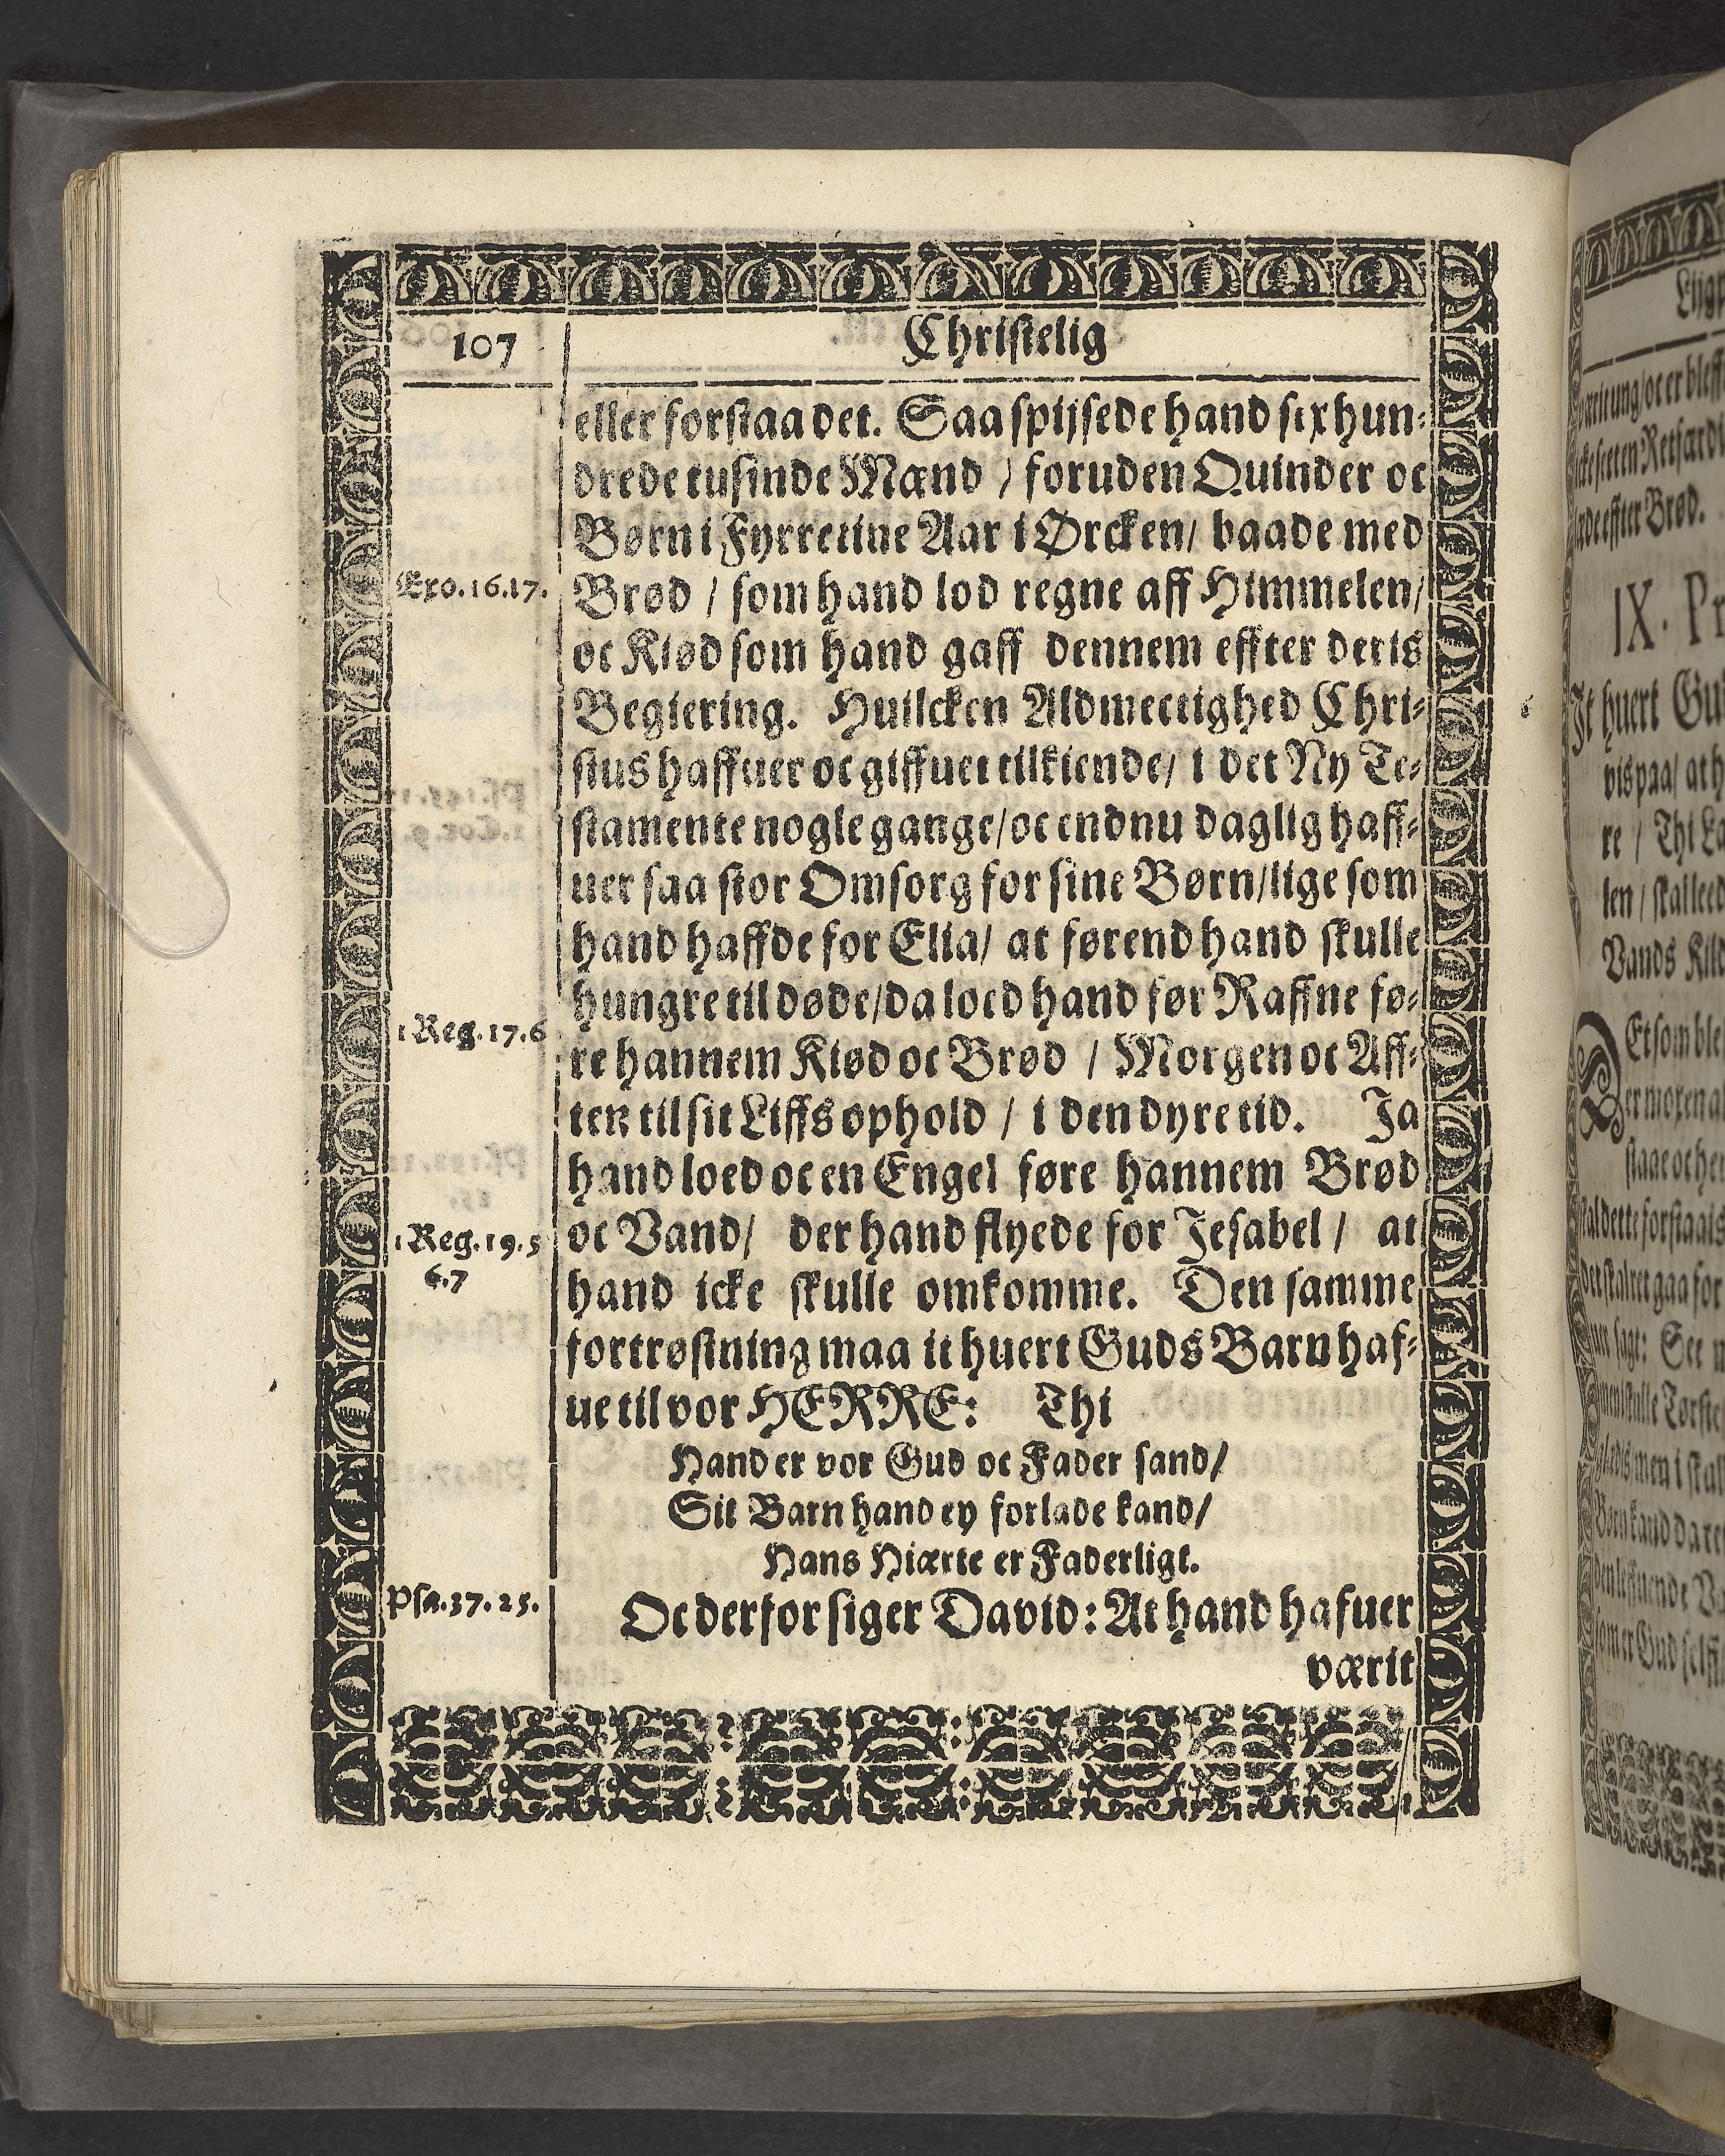 107
Christelig
eller forstaa det. Saa spijsede hand sex hun-
drede tusinde Mænd / foruden Quinder oc
Børn i Fyrretiue Aar i Ørcken / baade med
Exo. 16. 17.
Brød / som hand lod regne aff Himmelen /
oc Kiød som hand gaff dennem effter deris
Begiering. Huilcken Aldmectighed Chri-
stus haffuer oc giffuet tilkiende / i det Ny Te-
stamente nogle gange / oc endnu daglig haff-
uer saa stor Omsorg for sine Børn / lige som
hand haffde for Elia / at førend hand skulle
hungre til døde / da loed hand før Raffne fø-
1 Reg. 17. 6
re hannem Kiød oc Brød / Morgen oc Aff-
ten til sit Liffs ophold / i den dyre tid. Ja
hand loed oc en Engel føre hannem Brød
1 Reg. 19. 5
6. 7
oc Vand / der hand flyede for Jesabel / at
hand icke skulle omkomme. Den samme
fortrøstning maa it huert Guds Barn haf-
ue til vor HERRE: Thi
Hand er vor Gud oc Fader sand /
Sit Barn hand ey forlade kand /
Hans Hiærte er Faderligt.
Psa. 37. 25.
Oc derfor siger David: At hand hafuer
værit
IX. Pr
It huert Gu
vis paa / at h
re / Thi La
len / skal leed
Vands Kild